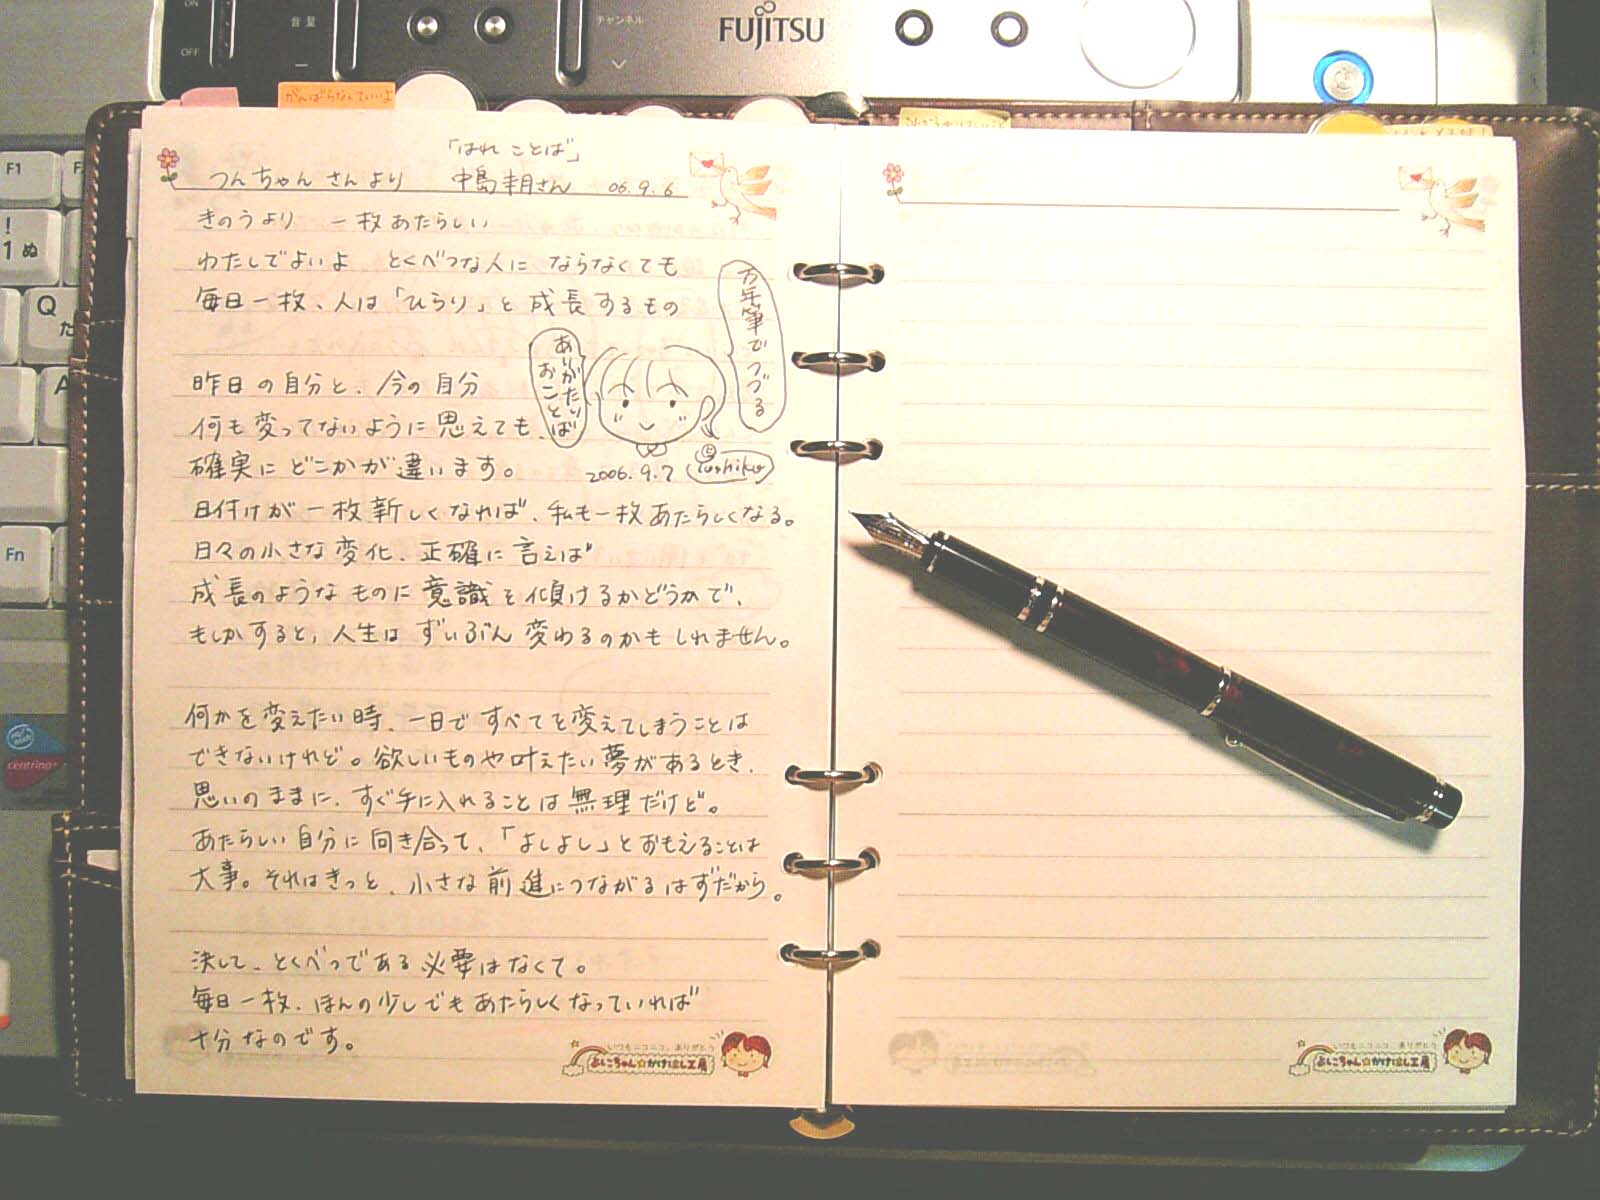 ON
OFF
音量
チャンネル
FUJITSU
がんばらなくていいよ
「はれ ことば」
つんちゃん さんより 中島 さん 06.9.6
きのうより 一枚あたらしい
わたしでよいよ とくべつな人に ならなくても
毎日一枚、人は「ひらり」と成長するもの
万年筆でつづる
ありがたい
おことば
昨日の自分と、今の自分
何も変ってないように思えても、
確実にどこかが違います。
2006.9.7 Yoshiko
日付けが一枚新しくなれば、私も一枚あたらしくなる。
日々の小さな変化、正確に言えば
成長のようなものに意識を傾けるかどうかで、
もしかすると、人生はずいぶん変わるのかもしれません。
何かを変えたい時、一日ですべてを変えてしまうことは
できないけれど。欲しいものや叶えたい夢があるとき、
思いのままに、すぐ手に入れることは無理だけど。
あたらしい自分に向き合って、「よしよし」とおもえることは
大事。それはきっと、小さな前進につながるはずだから。
決して、とくべつである必要はなくて。
毎日一枚、ほんの少しでもあたらしくなっていれば
十分なのです。
いつもニコニコ、ありがとう
よしこちゃん☆かけはし工房
いつもニコニコ、ありがとう
よしこちゃん☆かけはし工房
F1
!
1 ぬ
Q
た
A
Fn
centrino